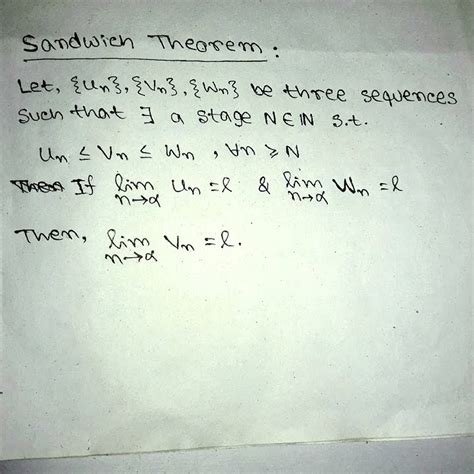 Sandwich Theorem :
Let, {Un}, {Vn}, {Wn} be three sequences
such that ∃ a stage N∈ℕ s.t.
Un ≤ Vn ≤ Wn , ∀n ≥ N
Then If lim n→α Un = l & lim n→α Wn = l
Then, lim n→α Vn = l.